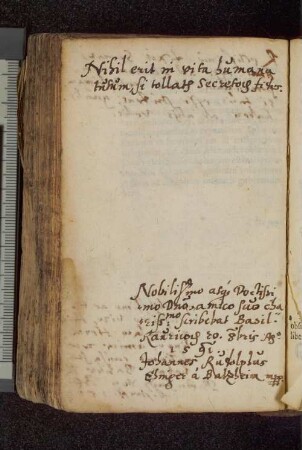 Nihil erit in vita humana
tutum, si tollatis secretorum fidem.
Nobilissimo atque Doctissi
mo Dno, amico suo cha
rissimo scribebat Basil.
Rauricorum 20. Bris Ao
1591.
Johannes Rudolphus
Ehinger à Baltzheim